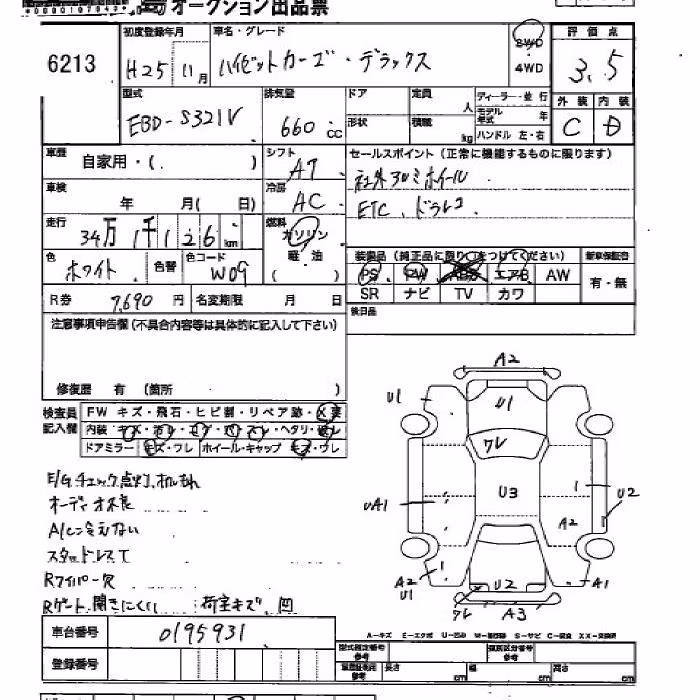 オークション出品票
6213
初度登録年月
H25年 11月
車名・グレード
ハイゼットカーゴ・デラックス
2WD
4WD
評価点
3.5
外装 内装
C D
型式
EBD-S321V
排気量
660 CC
ドア
形状
定員 人
積載 kg
ディーラー・並行
モデル年式 年
ハンドル 左・右
車歴
自家用・( )
シフト
AT
セールスポイント (正常に機能するものに限ります)
社外アルミホイール
ETC、ドラレコ
車検
年 月( 日)
冷房
AC
走行
34万1千126km
燃料
ガソリン
軽・油
( )
色
ホワイト
色替
色コード
W09
装備品 (純正品に限り○をつけてください)
PS PW ABS エアB AW
SR ナビ TV カワ
新車保証書
有・無
R券 7,690 円
名変期限 月 日
後日品
注意事項申告欄 (不具合内容等は具体的に記入して下さい)
修復歴 有 (箇所 )
検査員記入欄
FW キズ・飛石・ヒビ割・リペア跡・X要
内装・キズ・汚レ・コゲ・穴・スレ・ヘタリ・破レ
ドアミラー キズ・ワレ ホイール・キャップ キズ・ワレ
E/Gチェック点灯、オイルもれ
オーディオ不良
A/C冷えない
スタッドレスT
Rワイパー欠
Rゲート開きにくい 荷室キズ、凹
A2
U1
U1
ワレ
U3
UA1
U2
A2
A2
U1
U2
A1
ワレ
A3
車台番号 0195931
登録番号
A-キズ E-エクボ U-凹み W-補修跡 S-サビ C-腐食 XX-交換済
型式指定番号
参考
類別区分番号
参考
長さ cm
幅 cm
高さ cm